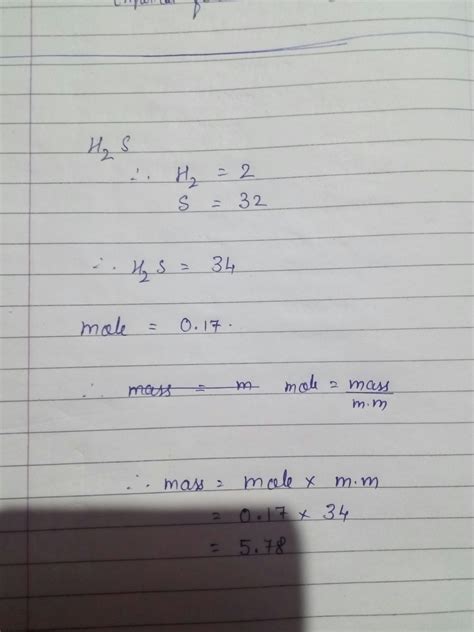 H₂S
∴ H₂ = 2
S = 32
∴ H₂S = 34
mole = 0.17.
∴ mass = m mole = mass/m.m
∴ mass = mole × m.m
= 0.17 × 34
= 5.78